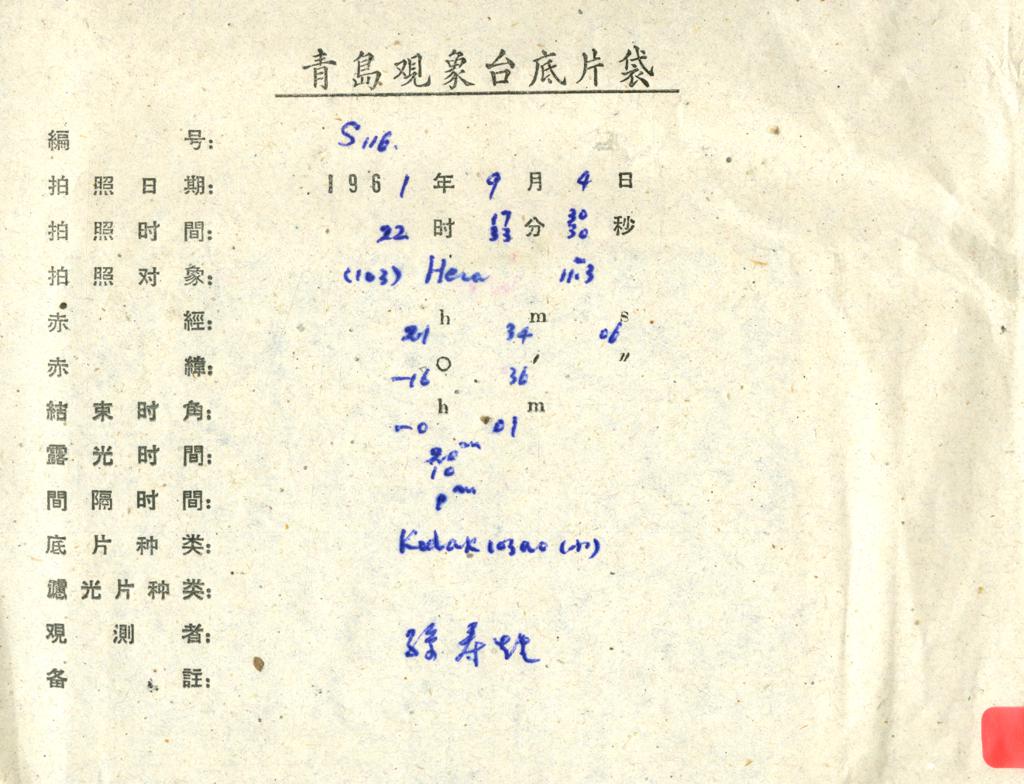 青島观象台底片袋
編号: S116.
拍照日期: 1961年9月4日
拍照时間: 22时 17 33分 30 30秒
拍照对象: (103) Hera 11.m3
赤經: 21h 34m 06s
赤緯: -16° 36′ ″
結束时角: -0h 01m
露光时間: 20m 10
間隔时間: m
底片种类: Kodak 103aO (小)
濾光片种类:
观測者: 孫寿
备註: